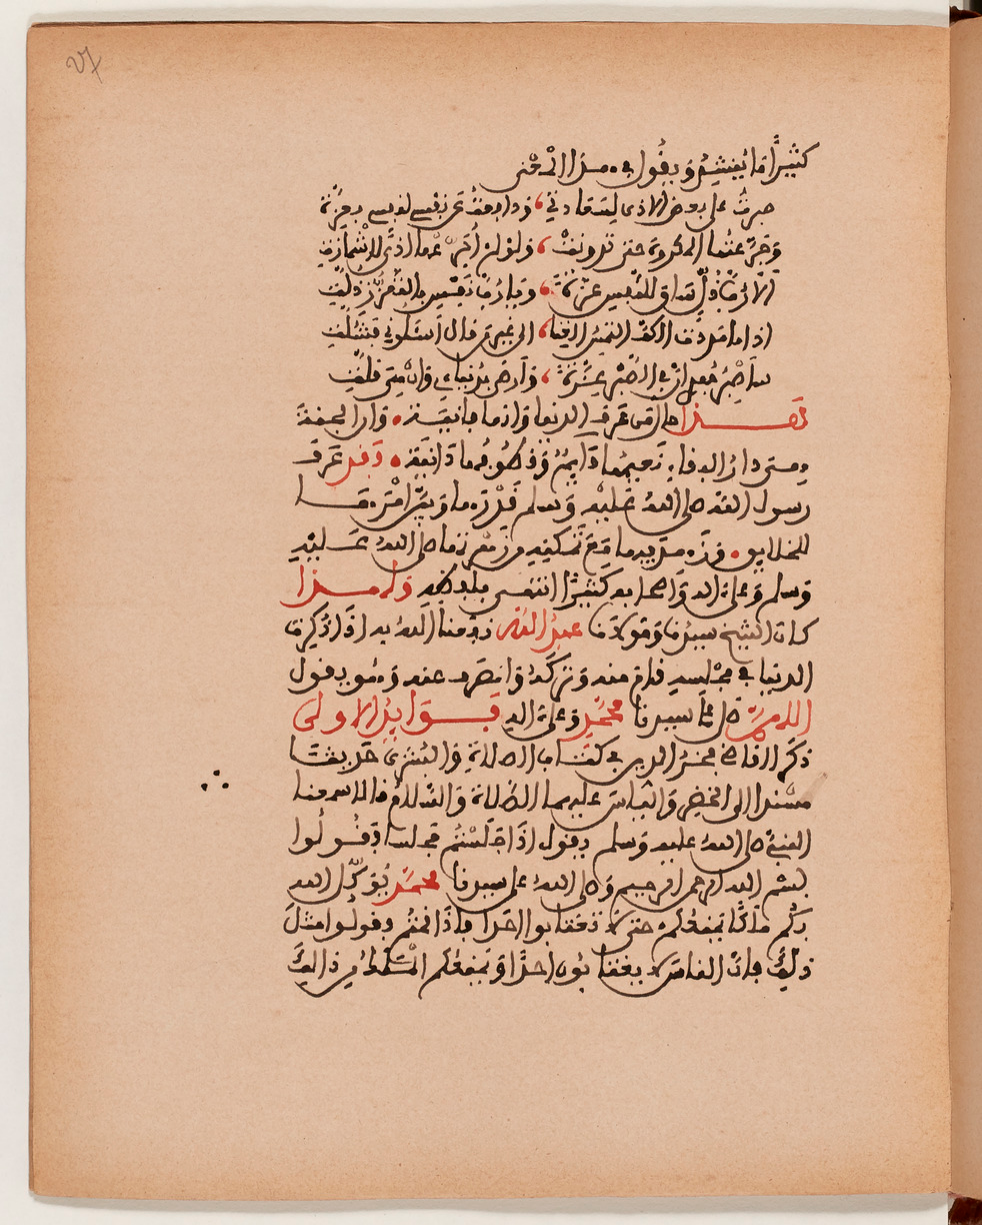 27
كثيرا ما ينشد ويقول في هذا المعنى
صبرت على بعض الاذى لسعادتي ، ودافعت عن نفسي لنفسي بعزة
وجرعتها المكروه حتى تدربت ، ولو لم اجرعها اذى لاشمأزت
الا رب ذل ساق للنفس عزة ، ويا رب نفس بالتعزز ذلت
اذا ما مددت الكف التمس الغنا ، الى غير من قال اسئلوني فشلت
ساصبر جهدي ان في الصبر عزة ، وارضى بدنيائي وان هي قلت
هذا حال من عرف الدنيا وانها فانية . وان الجنة
هي دار البقاء نعيمها دايم وقطوفها دانية . وقد عرف
رسول الله صلى الله عليه وسلم قدرها وبين امرها
للخلايق . وزهد فيها مع تمكينه من زمزمها صلى الله عليه
وسلم وعلى اله واصحابه كثيرا انتهى بلفظه ولهذا
كان الشيخ سيدنا ومولانا عبد الله نفعنا الله به اذا ذكرت
الدنيا في مجلسه قام منه وتركه وانصرف عنه وهو يقول
اللهم صل على سيدنا محمد وعلى اله فوايد الاولى
ذكر القاضي مجد الدين في كتاب الصلاة والبشرى حديثا
مسندا الى الخضر والياس عليهما الصلاة والسلام قالا سمعنا
النبي صلى الله عليه وسلم يقول اذا جلستم مجلسا فقولوا
بسم الله الرحمن الرحيم وصلى الله على سيدنا محمد يوكل الله
بكم ملكا يمنعكم حتى لا تغتابوا احدا فاذا قمتم وقولوا مثل
ذلك فان الناس لا يغتابون احدا ويمنعكم الملك من ذالك